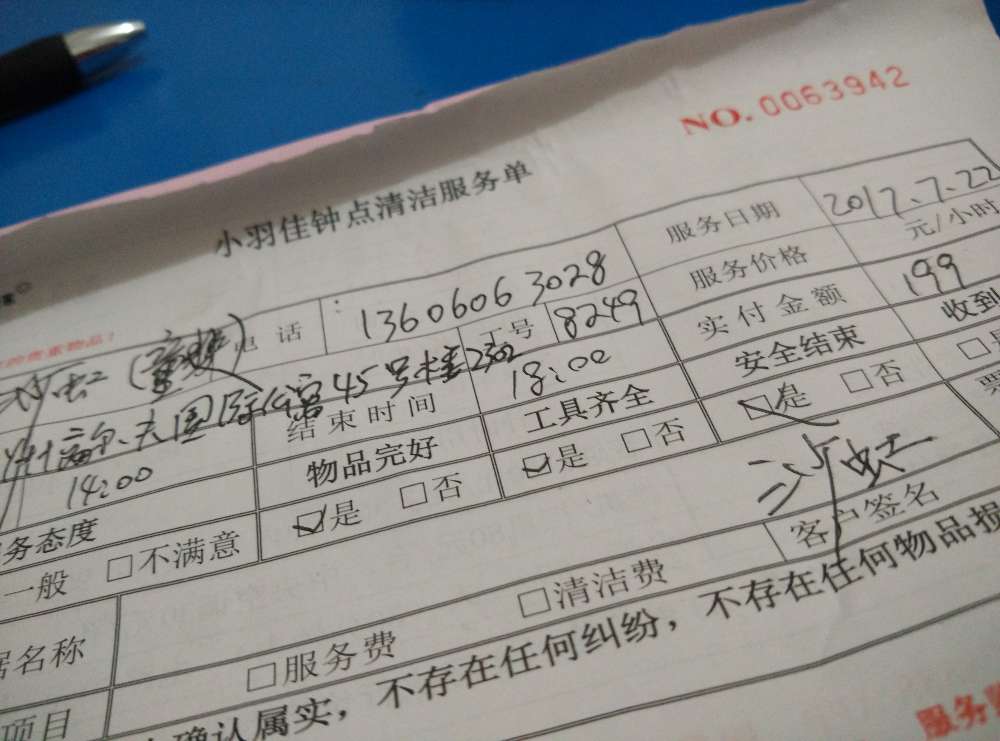 NO. 0063942
小羽佳钟点清洁服务单
电话 13606063028 服务日期 2017.7.22
工号 8249 服务价格 元/小时
国际 45号楼2302 实付金额 199
14:00 结束时间 18:00 安全结束 收到
务态度 物品完好 工具齐全 ☑是 □否
一般 □不满意 ☑是 □否 ☑是 □否
客户签名
据名称 □服务费 □清洁费
项目
确认属实，不存在任何纠纷，不存在任何物品损
服务